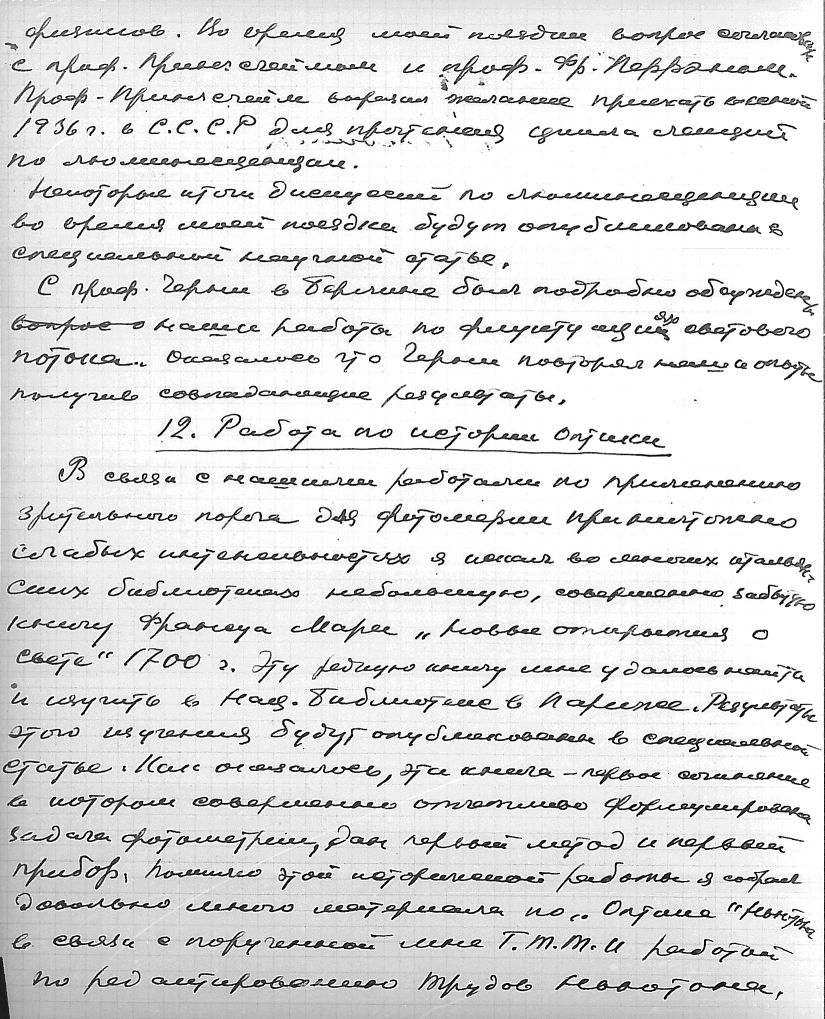 физиков. Во время моей поездки вопрос согласован
с проф. Принсгеймом и проф. Фр. Перрэном.
Проф. Принсгейм выразил желание приехать весной
1936 г. в С.С.С.Р для прочтения цикла лекций
по люминесценции.
Некоторые итоги дискуссий по люминесценции
во время моей поездки будут опубликованы в
специальной научной статье.
С проф. Черни в Берлине были подробно обсуждены
вопрос о наши работы по флуктуациям светового
потока. Оказалось что Черни повторял наши опыты
получив совпадающие результаты.
12. Работа по истории оптики
В связи с нашими работами по применению
зрительного порога для фотометрии при ничтожно
слабых интенсивностях я искал во многих итальян-
ских библиотеках небольшую, совершенно забытую
книгу Франсуа Мари „Новые открытия о
свете" 1700 г. Эту редкую книгу мне удалось найти
и изучить в Нац. Библиотеке в Париже. Результаты
этого изучения будут опубликованы в специальной
статье. Как оказалось, эта книга – первое сочинение
в котором совершенно отчетливо формулирована
задача фотометрии, дан первый метод и первый
прибор. Помимо этой исторической работы я собрал
довольно много материала по „Оптике" Ньютона
в связи с порученной мне Г.Т.Т.И работой
по редактированию трудов Ньютона.